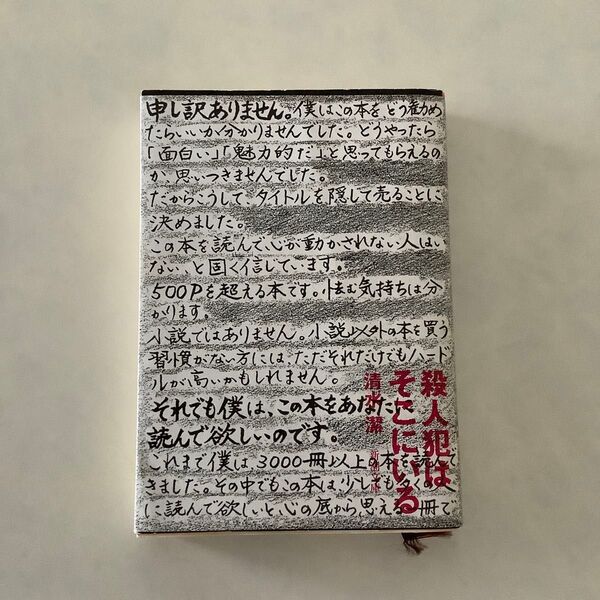 申し訳ありません。僕はこの本をどう勧め
たらいいか分かりませんでした。どうやったら
「面白い」「魅力的だ」と思ってもらえるの
か、思いつきませんでした。
だからこうして、タイトルを隠して売ることに
決めました。
この本を読んで心が動かされない人はい
ない、と固く信じています。
500Pを超える本です。怯む気持ちは分
かります。
小説ではありません。小説以外の本を買う
習慣がない方には、ただそれだけでもハード
ルが高いかもしれません。
それでも僕は、この本をあなたに
読んで欲しいのです。
これまで僕は3000冊以上の本を読んで
きました。その中でもこの本は、少しでも多くの
に読んで欲しいと心の底から思える一冊で
殺人犯は
そこにいる
清水潔